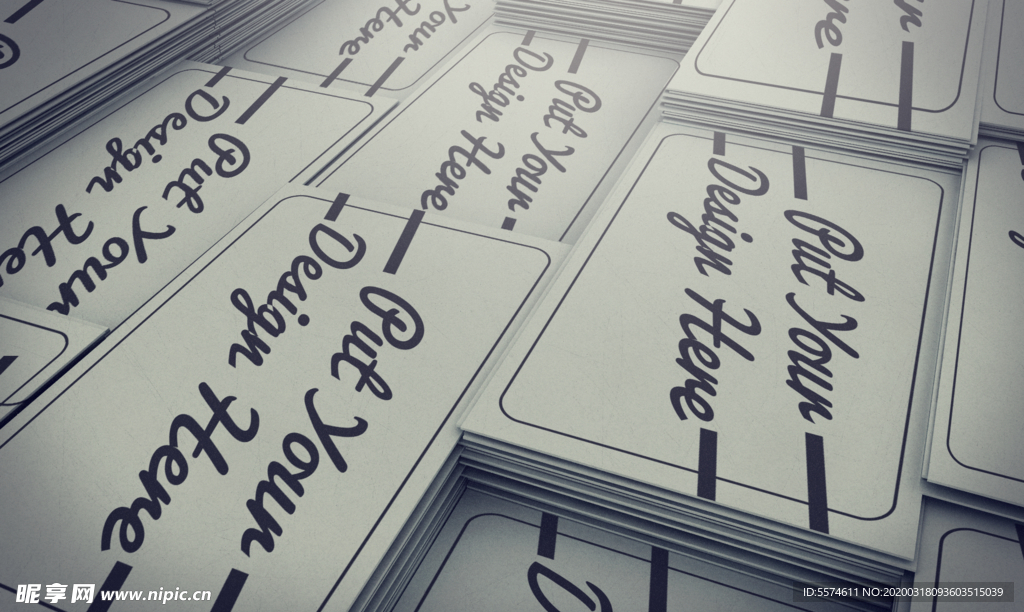 Your
Here
ere
Put Your
Design Here
Put Your
Design Here
Put Your
Design Here
Put Your
Design Here
昵享网 www.nipic.cn
ID:5574611 NO:20200318093603515039